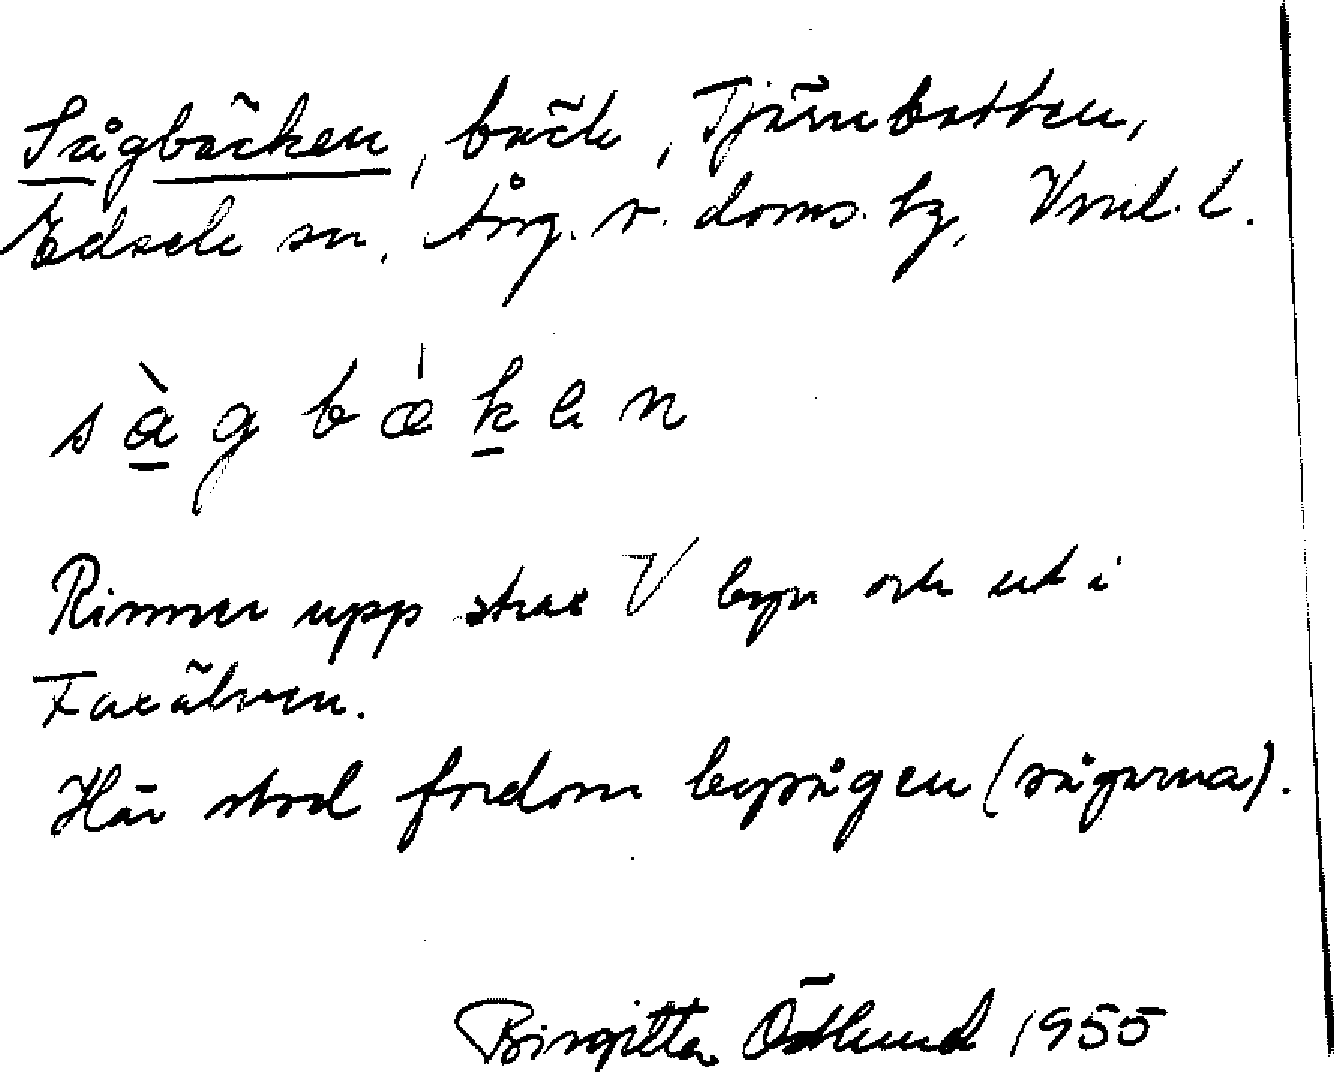 Sågbäcken, bäck, Tjärnbotten,
Edsele sn, Ång. v. doms. hg, Vnrl. l.
sàgbæken
Rinner upp strax V byn och ut i
Faxälven.
Här stod fordom bysågen (sågarna).
Birgitta Ödlund 1955